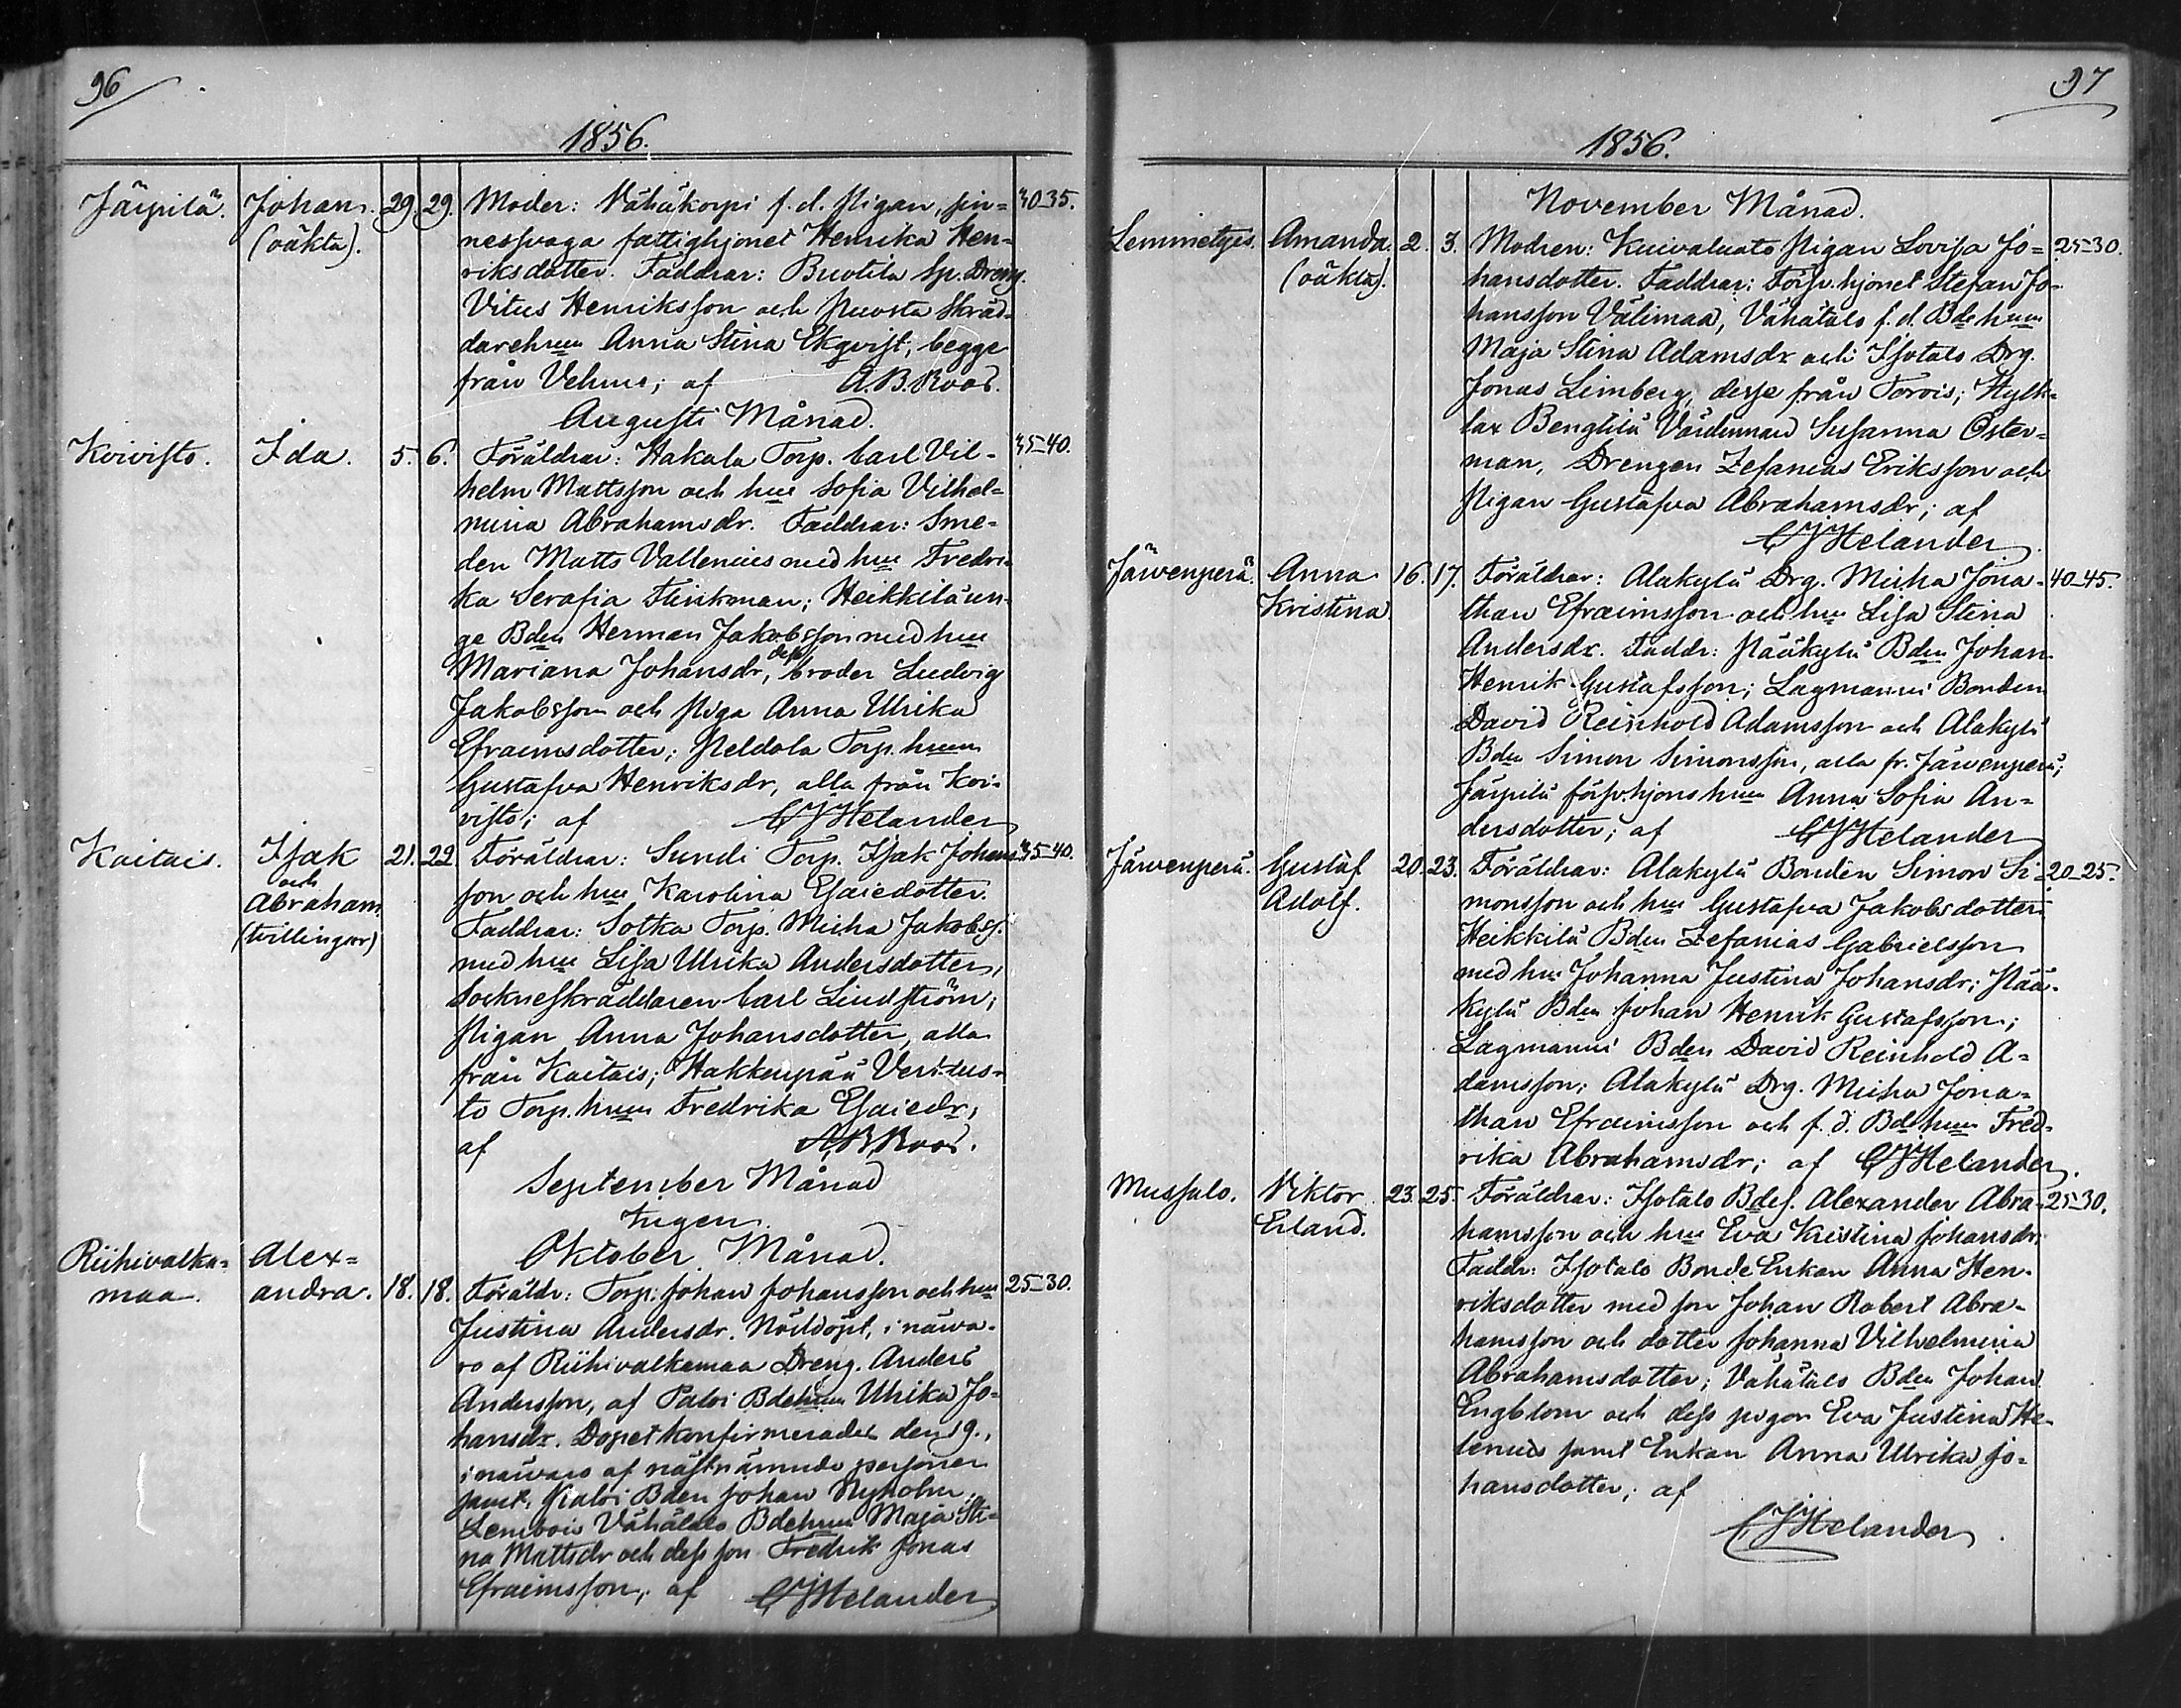 96
1856.
Järpilä. Johan. 29. 29. Moder: Vähäkorpi f.d. Pigan, sin= 40-35.
(oäkta). nessvaga fattighjonet Henrika Hen=
riksdotter. Faddrar: Buotila Sp. Dreng.
Vitus Henriksson och Skräd=
darehun Anna Stina Ekqvist, begge
från Vehmo; af A.B. Roos.
Augusti Månad.
Koivisto. Ida. 5. 6. Föräldrar: Hakala Torp. Carl Vil= 45-40.
helm Mattsson och hu Sofia Vilhel=
mina Abrahamsdr. Faddrar: Sme=
den Matts Vallenius med hu Fredri=
ka Serafia Flinkman; Heikkilä un=
ge Bden Herman Jakobsson med hu
Mariana Johansdr, dess broder Ludvig
Jakobsson och Piga Anna Ulrika
Efraimsdotter; Peldola Torp. hun
Gustafva Henriksdr, alla från Koi=
visto; af CJHelander
Kaitais. Isak 21. 22. Föräldrar: Sundi Torp. Isak Johans= 35-40.
och son och hu Karolina Esaiedotter.
Abraham Faddrar: Sotka Torp. Micha Jakobss.
(tvillingar) med hu Lisa Ulrika Andersdotter,
Sockneskräddaren Carl Lindström;
Pigan Anna Johansdotter, alla
från Kaitais; Hakkenpää
to Torp. hun Fredrika Esaiedr;
af A.B. Roos.
September Månad
Ingen.
Oktober Månad.
Riihivalka= Alex=
maa. andra. 18. 18. Föräldr: Torp. Johan Johansson och hu 25-30.
Justina Andersdr. Nöddöpt, i närva=
ro af Riihivalkamaa Dreng. Anders
Andersson, af Paloi Bdehun Ulrika Jo=
hansdr. Dopet konfirmerades den 19.,
i närvaro af nästnämnde personer
samt, Bden Johan Nyholm,
Lembois Vähätalo Bdehun Maja Sti=
na Mattsdr och dess son Fredrik Jonas
Efraimsson; af CJHelander
97
1856.
November Månad.
Lemmetyis. Amanda. 2. 3. Modren: Kuivaluato Pigan Lovisa Jo= 25-30.
(oäkta). hansdotter. Faddrar: Förpr.hjonet Stefan Jo=
hansson Välimaa, Vähätalo f.d. Bdehun
Maja Stina Adamsdr och Isotalo Drg.
Jonas Limberg, desse från Torois; Hylk=
lax Bengtilä Värdinnan Susanna Öster=
man, Drengen Zefanias Eriksson och
Pigan Gustafva Abrahamsdr; af
CJHelander.
Järvenperä. Anna 16. 17. Föräldrar: Alakylä Drg. Micha Jona= 40-45.
Kristina. than Efraimsson och hu Lisa Stina
Andersdr. Faddr: Pääkylä Bden Johan
Henrik Gustafsson; Lagmanni Bonden
David Reinhold Adamsson och Alakylä
Bden Simon Simonsson, alla fr. Järvenperä;
Järpilä förpr.hjonshun Anna Sofia An=
dersdotter; af CJHelander
Järvenperä. Gustaf 20. 23. Föräldrar: Alakylä Bonden Simon Si= 20-25.
Adolf. monsson och hu Gustafva Jakobsdotter.
Heikkilä Bden Zefanias Gabrielsson
med hu Johanna Justina Johansdr; Pää=
kylä Bden Johan Henrik Gustafsson;
Lagmanni Bden David Reinhold A=
damsson; Alakylä Drg. Micha Jona=
than Efraimsson och f.d. Bdehun Fred=
rika Abrahamsdr; af CJHelander.
Mussalo. Viktor 23. 25. Föräldrar: Isotalo Bdes. Alexander Abra= 25-30.
Erland. hamsson och hu Eva Kristina Johansdr.
Faddr: Isotalo Bonde Enkan Anna Hen=
riksdotter med son Johan Robert Abra=
hamsson och dotter Johanna Vilhelmina
Abrahamsdotter; Vähätalo Bden Johan
Engblom och dess pigor Eva Justina He=
lenius samt Enkan Anna Ulrika Jo=
hansdotter; af
CJHelander